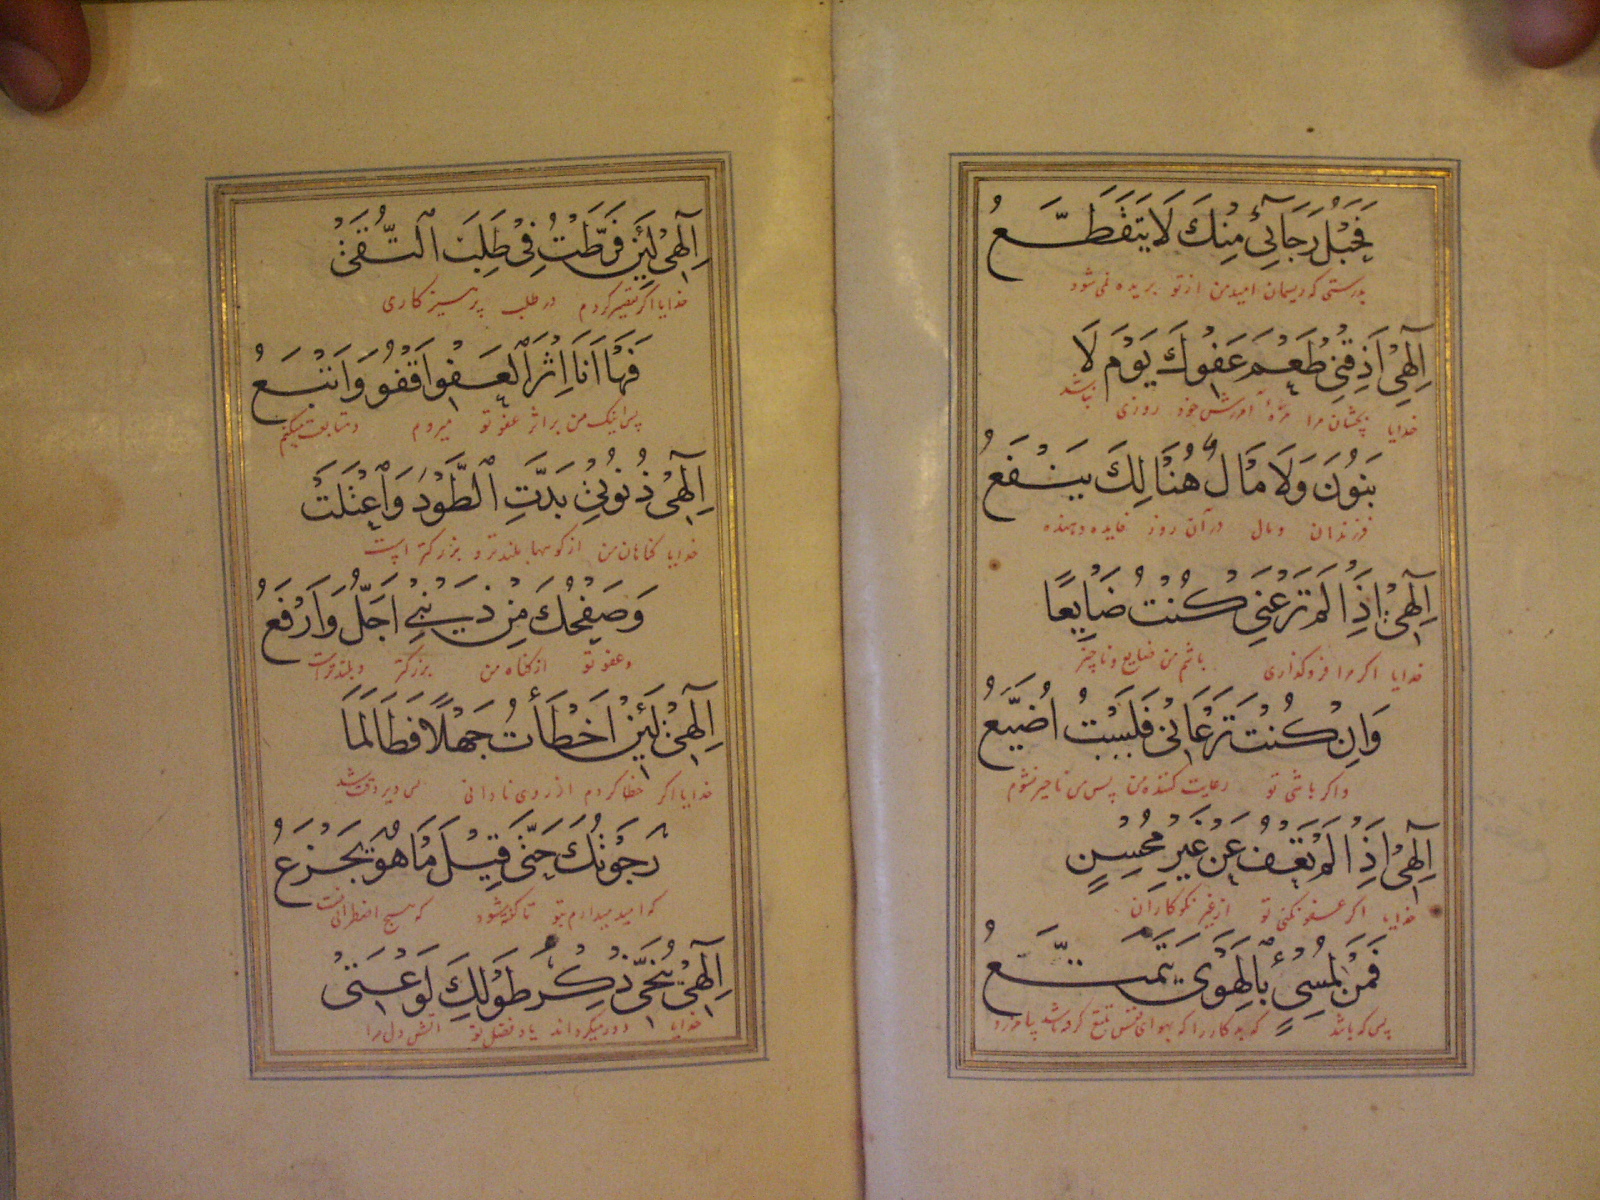 فَحَبْلُ رَجَائِي مِنْكَ لَا يَتَقَطَّعُ
بدرستی که ریسمان امید من از تو بریده نمی‌شود
اِلٰهِي اَذِقْنِي طَعْمَ عَفْوِكَ يَوْمَ لَا
خدایا بچشان مرا مزهٔ آمرزش خود روزی نباشد
بَنُونَ وَلَا مَالٌ هُنَالِكَ يَنْفَعُ
فرزندان و مال در آن روز فایده دهنده
اِلٰهِي اِذَا لَمْ تَرْعَنِي كُنْتُ ضَايِعًا
خدایا اگر مرا فروگذاری باشم من ضایع و ناچیز
وَاِنْ كُنْتَ تَرْعَانِي فَلَسْتُ اُضَيَّعُ
و اگر باشی تو رعایت کننده من پس من ناچیز نشوم
اِلٰهِي اِذَا لَمْ تَعْفُ عَنْ غَيْرِ مُحْسِنٍ
خدایا اگر عفو نکنی تو از غیر نکوکاران
فَمَنْ لِمُسِيْءٍ بِالْهَوٰى يَتَمَتَّعُ
پس که باشد که بدکار را که بهوای نفس تمتع کرفته باشد
اِلٰهِي لَئِنْ فَرَّطْتُ فِي طَلَبِ التُّقٰى
خدایا اگر تقصیر کردم در طلب پرهیزکاری
فَهَا اَنَا اِثْرَ الْعَفْوِ اَقْفُو وَاَتْبَعُ
پس اینک من بر اثر عفو تو میروم و متابعت میکنم
اِلٰهِي ذُنُوبِي بَذَّتِ الطَّوْدَ وَاعْتَلَتْ
خدایا گناهان من از کوهها بلندتر و بزرکتر است
وَصَفْحُكَ مِنْ ذَنْبِي اَجَلُّ وَاَرْفَعُ
و عفو تو از گناه من بزرکتر و بلندتر است
اِلٰهِي لَئِنْ اَخْطَأْتُ جَهْلًا فَطَالَمَا
خدایا اگر خطا کردم از روی نادانی
رَجَوْتُكَ حَتّٰى قِيلَ مَا هُوَ يَجْزَعُ
که امید میدارم بتو تا گفته میشود که هیچ اضطراب
اِلٰهِي يُنَحِّي ذِكْرُ طَوْلِكَ لَوْعَتِي
خدایا دور میکرداند یاد فضل تو آتش دل مرا